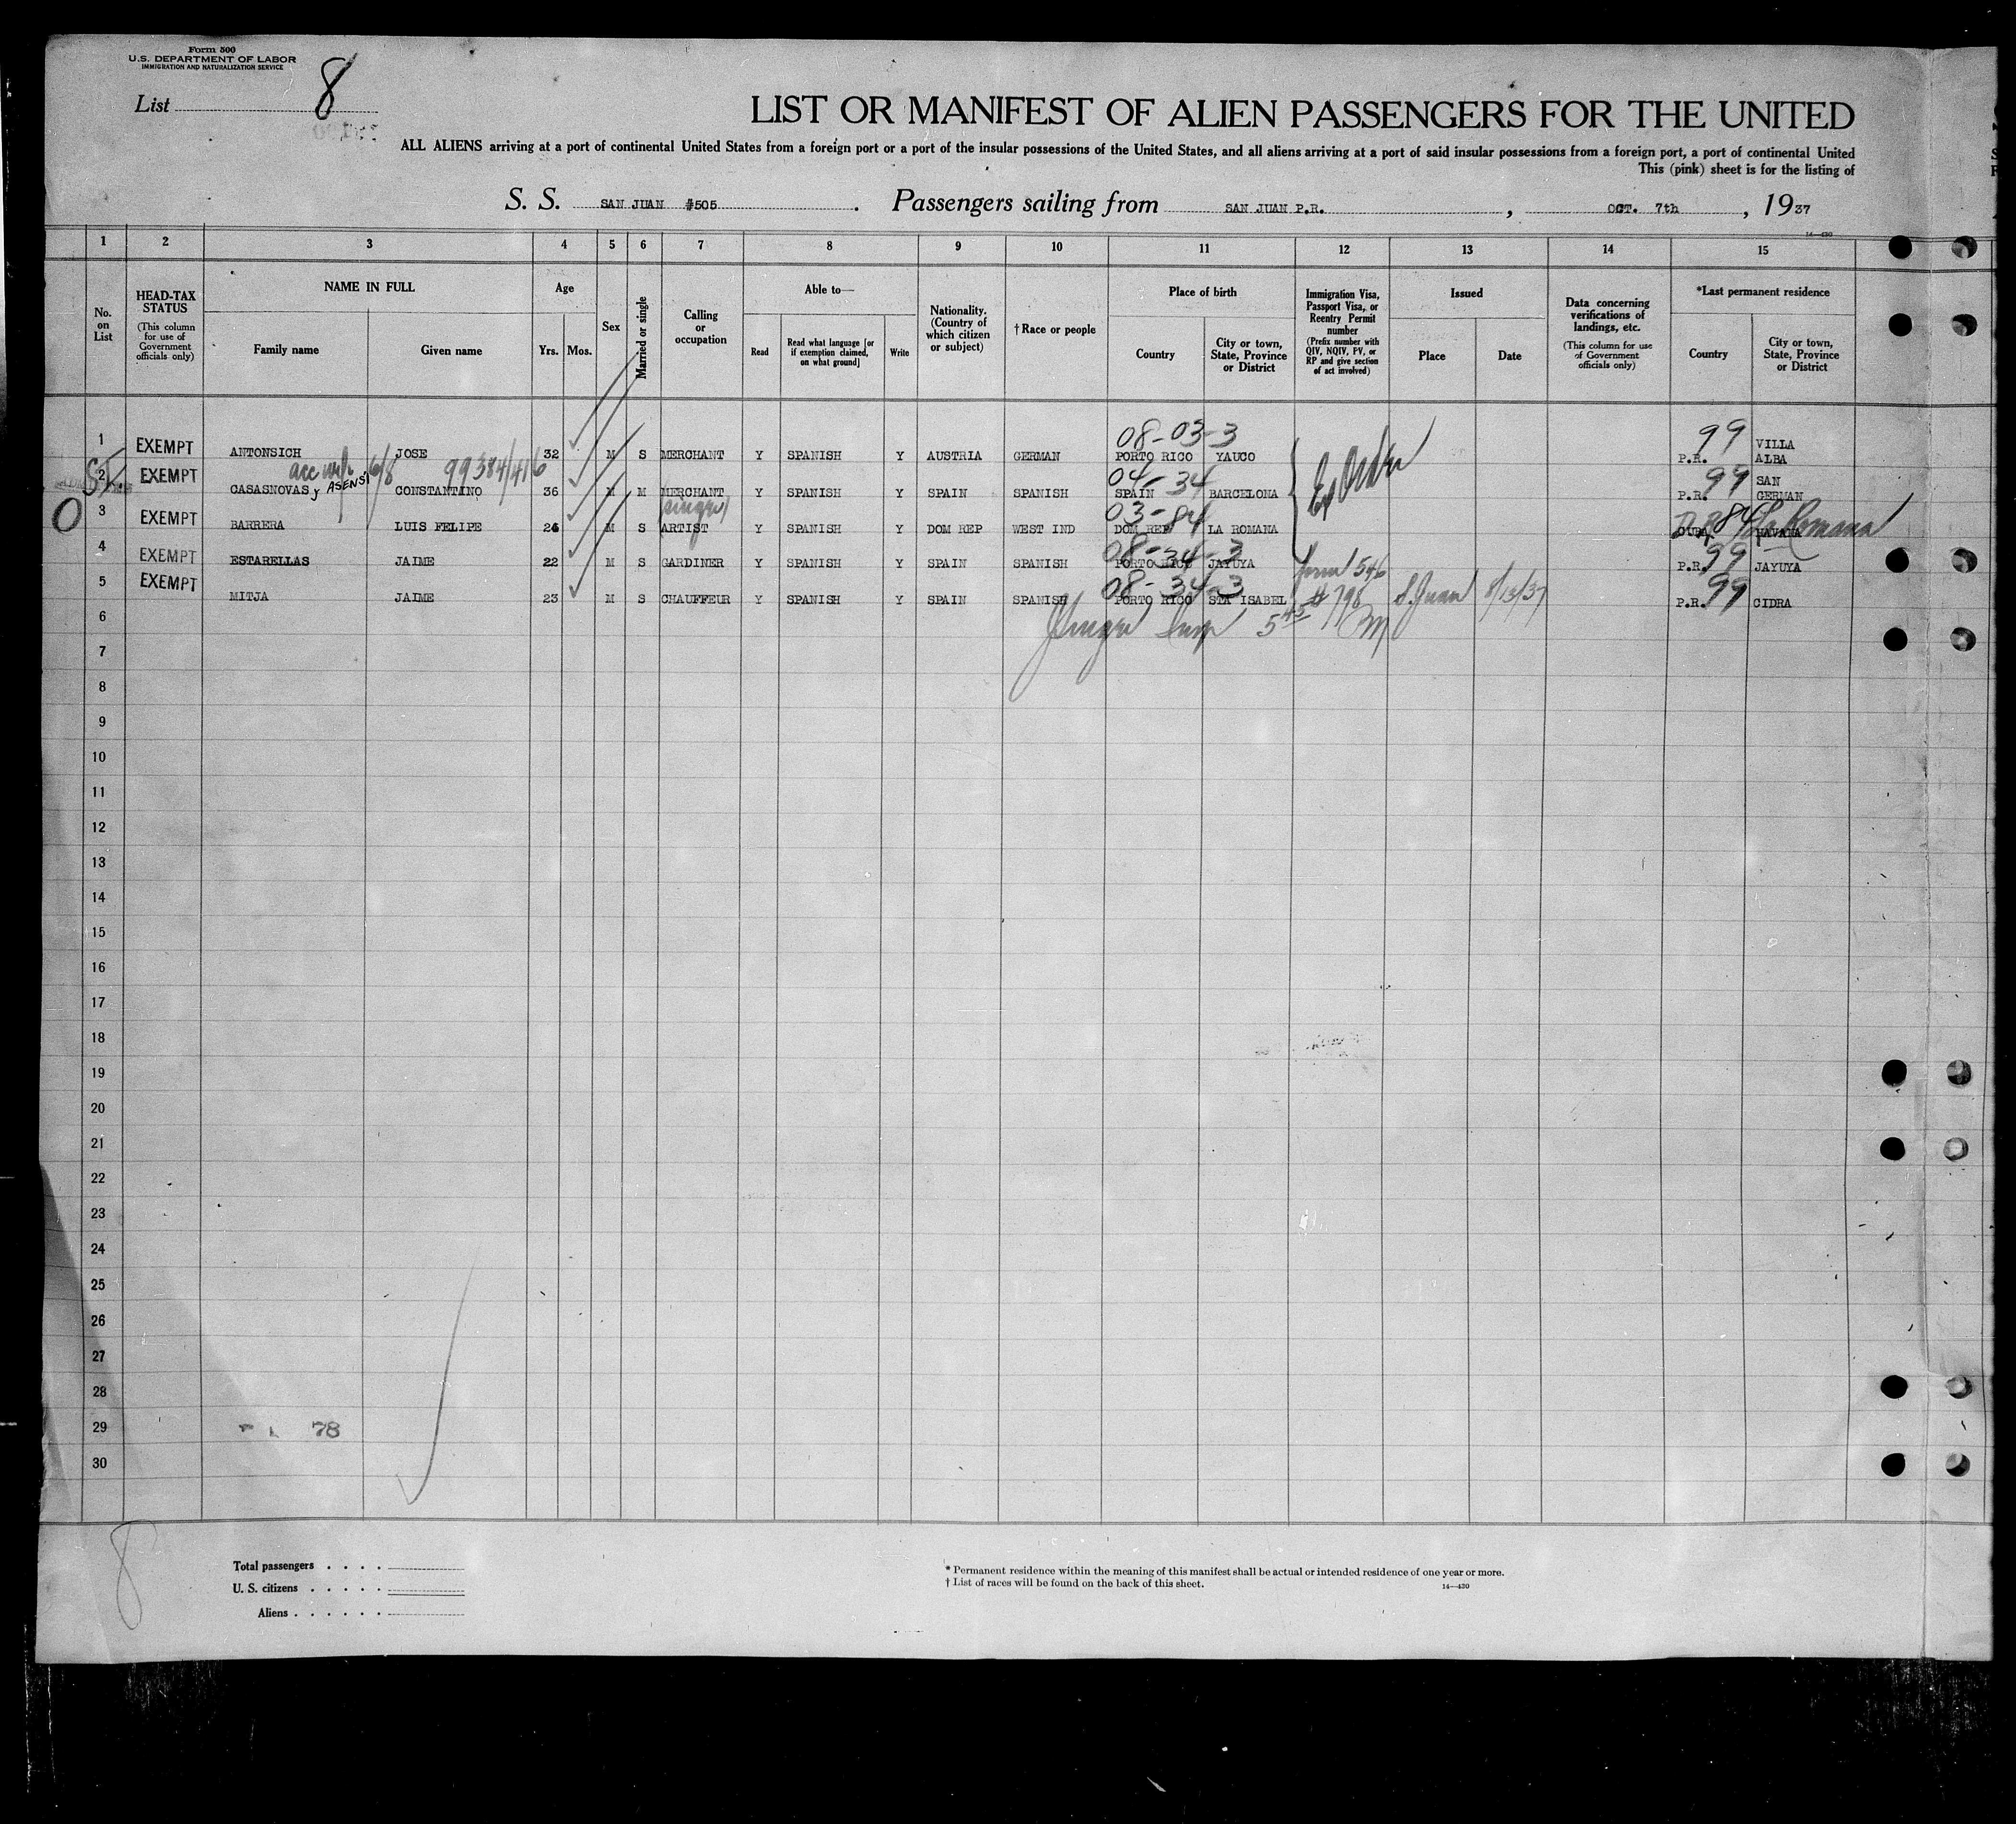 Form 500
U.S. DEPARTMENT OF LABOR
IMMIGRATION AND NATURALIZATION SERVICE
List 8
LIST OR MANIFEST OF ALIEN PASSENGERS FOR THE UNITED
ALL ALIENS arriving at a port of continental United States from a foreign port or a port of the insular possessions of the United States, and all aliens arriving at a port of said insular possessions from a foreign port, a port of continental United
This (pink) sheet is for the listing of
S. S. SAN JUAN #505. Passengers sailing from SAN JUAN P.R., OCT. 7th, 1937
14—430
1 2 3 4 5 6 7 8 9 10 11 12 13 14 15
No. on List
HEAD-TAX STATUS
(This column for use of Government officials only)
NAME IN FULL
Family name Given name
Age
Yrs. Mos.
Sex
Married or single
Calling or occupation
Able to—
Read Read what language [or if exemption claimed, on what ground] Write
Nationality. (Country of which citizen or subject)
†Race or people
Place of birth
Country City or town, State, Province or District
Immigration Visa, Passport Visa, or Reentry Permit number
(Prefix number with QIV, NQIV, PV, or RP and give section of act involved)
Issued
Place Date
Data concerning verifications of landings, etc.
(This column for use of Government officials only)
*Last permanent residence
Country City or town, State, Province or District
08-03-3 99
1 EXEMPT ANTONSICH JOSE 32 M S MERCHANT Y SPANISH Y AUSTRIA GERMAN PORTO RICO YAUCO P.R. VILLA ALBA
6/8 99384/416
04-34 99
2 EXEMPT CASASNOVAS y ASENSI CONSTANTINO 36 M M MERCHANT Y SPANISH Y SPAIN SPANISH SPAIN BARCELONA P.R. SAN GERMAN
(singer) 03-84 D.R. 84 La Romana
3 EXEMPT BARRERA LUIS FELIPE 26 M S ARTIST Y SPANISH Y DOM REP WEST IND DOM REP LA ROMANA CUBA HAVANA
08-34-3 Form 546 99
4 EXEMPT ESTARELLAS JAIME 22 M S GARDINER Y SPANISH Y SPAIN SPANISH PORTO RICO JAYUYA P.R. JAYUYA
08-34-3 #798 S. Juan 8/13/37 99
5 EXEMPT MITJA JAIME 23 M S CHAUFFEUR Y SPANISH Y SPAIN SPANISH PORTO RICO STA ISABEL P.R. CIDRA
6 Insp 5 45 PM
7
8
9
10
11
12
13
14
15
16
17
18
19
20
21
22
23
24
25
26
27
28
29 78
30
8
Total passengers . . . .
U. S. citizens . . . . .
Aliens . . . . . .
* Permanent residence within the meaning of this manifest shall be actual or intended residence of one year or more.
† List of races will be found on the back of this sheet. 14—430